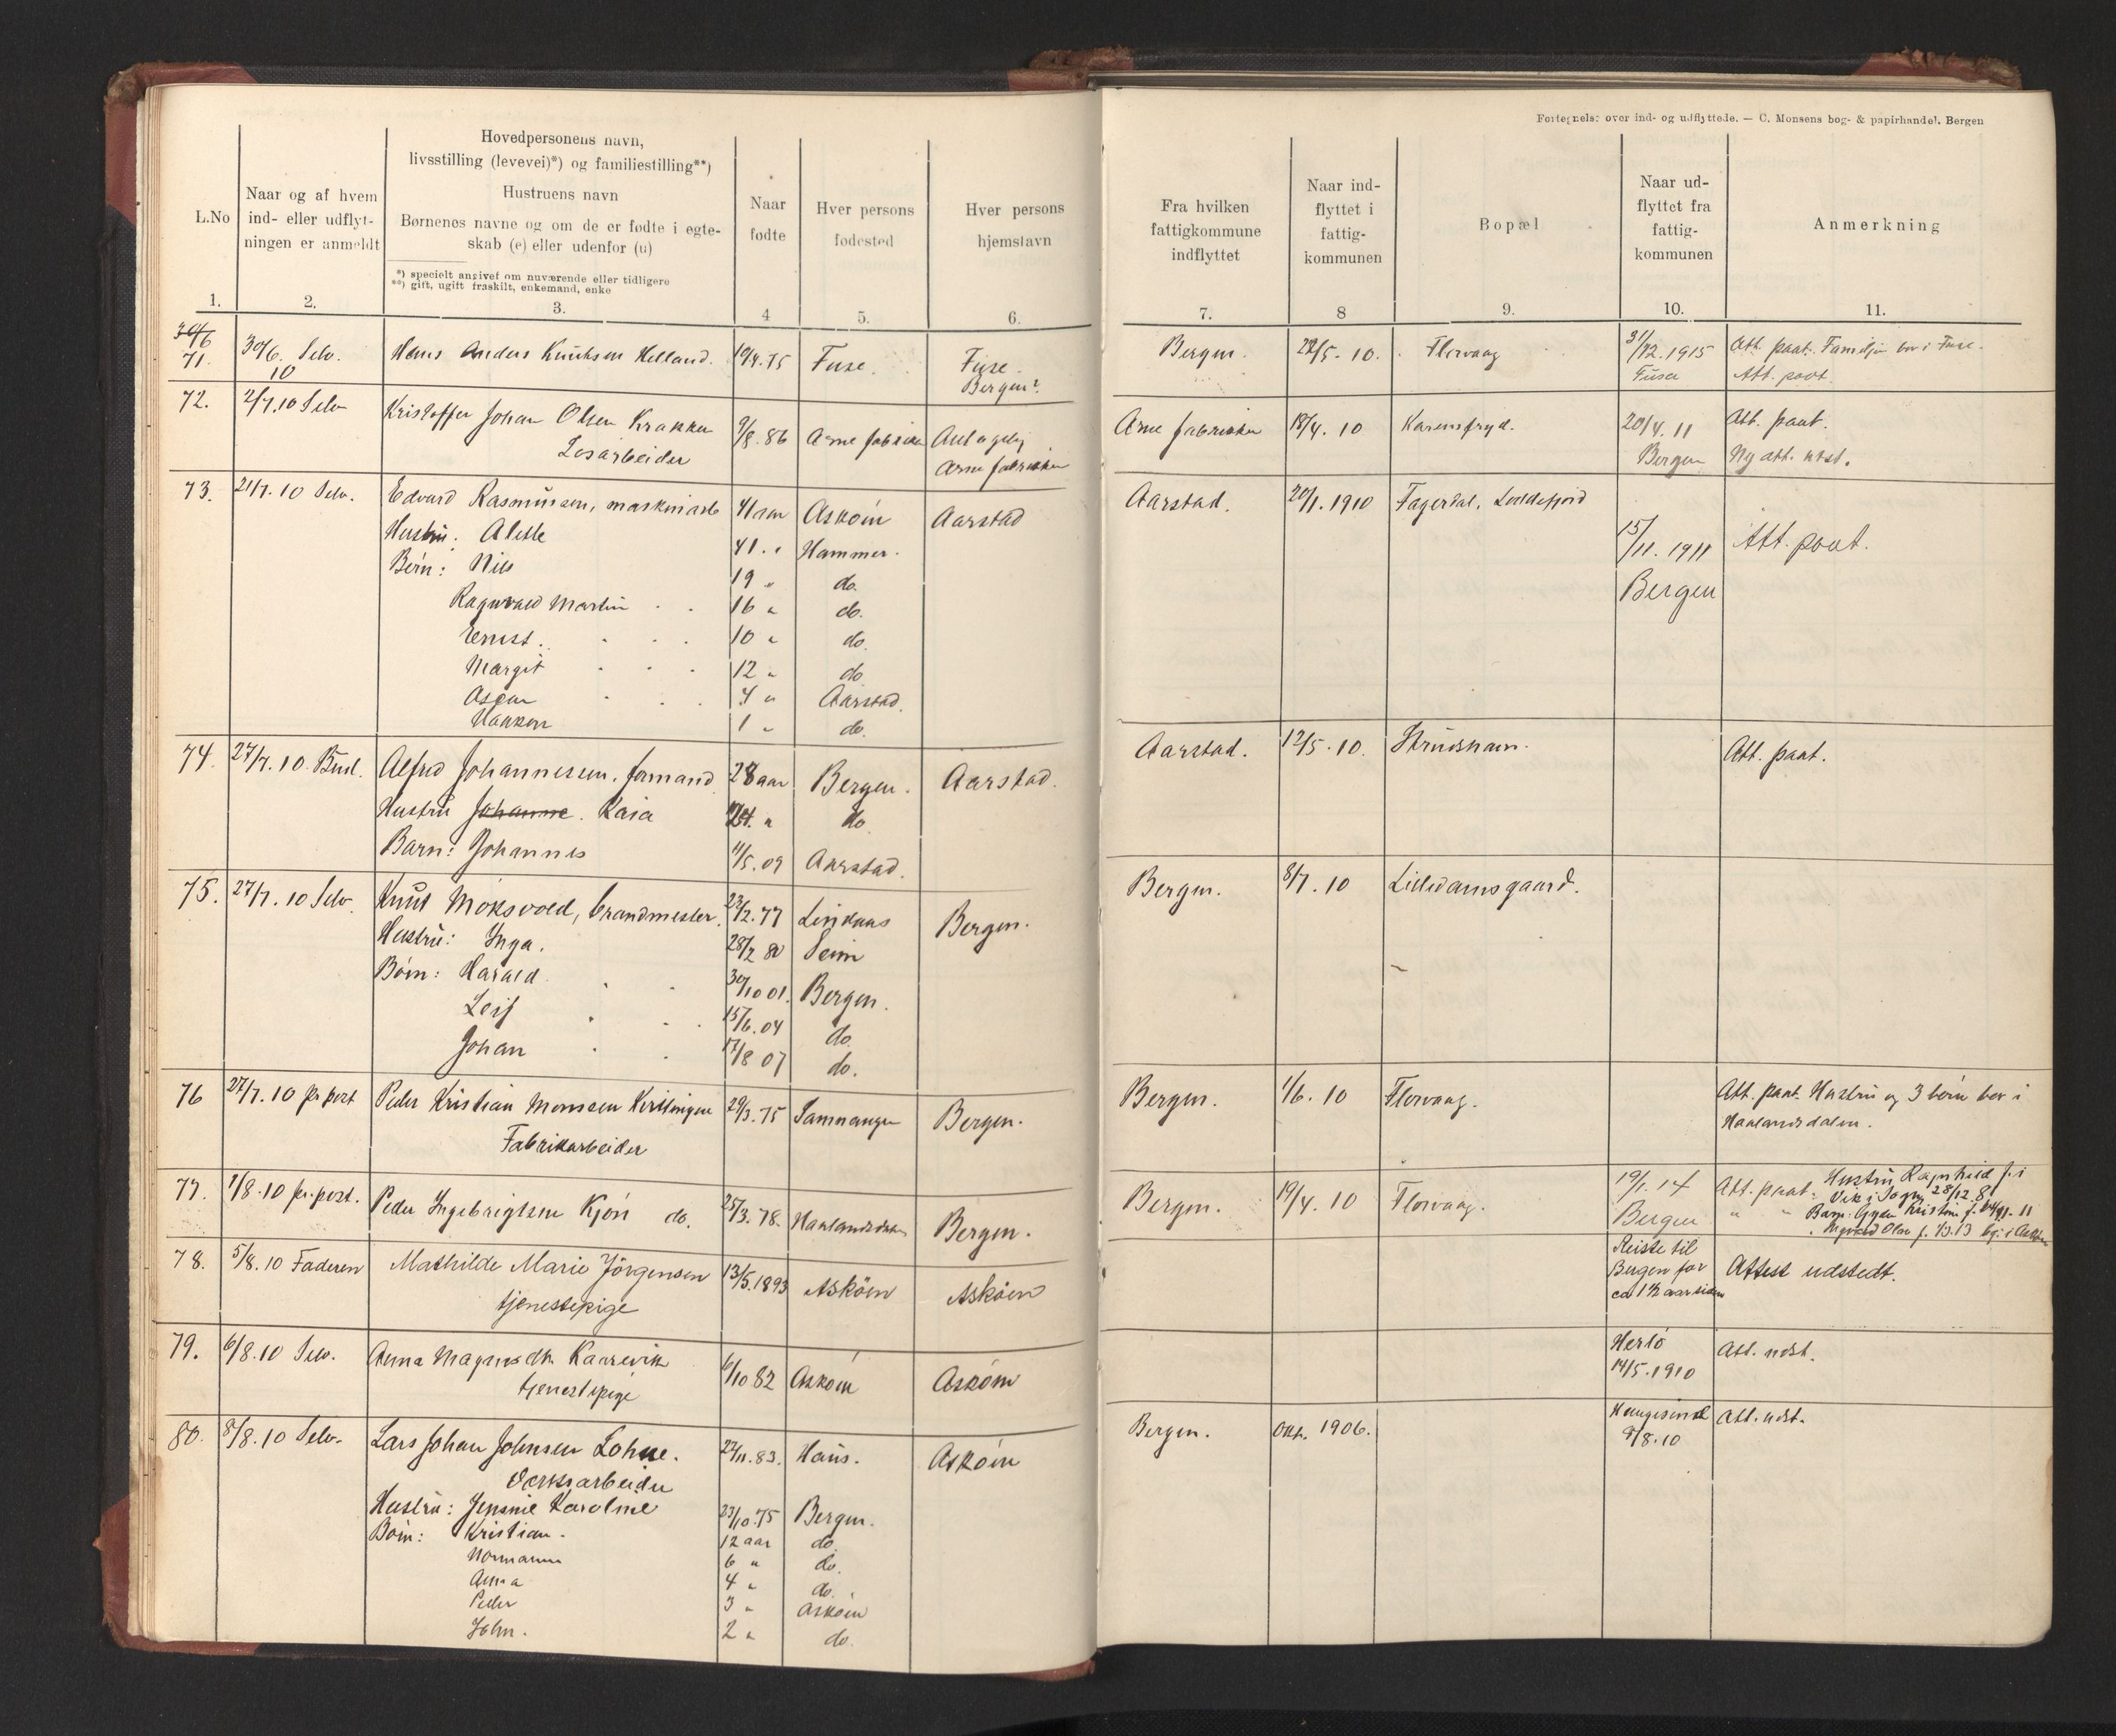 Fortegnelse over ind- og udflyttede. — C. Monsens bog- & papirhandel. Bergen
L.No
1.
Naar og af hvem
ind- eller udflyt-
ningen er anmeldt
2.
Hovedpersonens navn,
livsstilling (levevei)*) og familiestilling**)
Hustruens navn
Børnenes navne og om de er fødte i egte-
skab (e) eller udenfor (u)
*) specielt angivet om nuværende eller tidligere
**) gift, ugift fraskilt, enkemand, enke
3.
Naar
fødte
4
Hver persons
fødested
5.
Hver persons
hjemstavn
6.
Fra hvilken
fattigkommune
indflyttet
7.
Naar ind-
flyttet i
fattig-
kommunen
8
Bopæl
9.
Naar ud-
flyttet fra
fattig-
kommunen
10.
Anmerkning
11.
71. 30/6. 10 Selv. Hans Anders Knutsen Helland. 19/4.75 Fuse. Fuse. Bergen? Bergen. 22/5-10. Florvaag 31/12.1915 Att. paat. Familje bor i Fuse.
Fusa Att. paat.
72. 2/7.10 Selv Kristoffer Johan Olsen Krakken 9/8.86 Arne fabrikker Antagelig Arne fabrikker 18/4. 10 Karensfryd. 20/4. 11 Att. paat.
Løsarbeider Arne fabrikker Bergen Ny att. utst.
73. 21/7.10 Selv. Edvard Rasmussen, maskinarb 41 aar Askøen Aarstad Aarstad. 20/1.1910 Fagerdal, Loddefjord
Hustru: Alette 41 " Hammer. 15/11.1911 Att. paat.
Børn: Nils 19 " do. Bergen
Ragnvald Martin 16 " do.
Ernst. 10 " do.
Margit 12 " do
Oscar 4 " Aarstad.
Haakon 1 " do.
74. 27/7.10. Bud. Alfred Johannesen, formand 28 aar Bergen. Aarstad. Aarstad. 12/5.10. Strudshavn. Att. paat.
Hustru Johanne. Kaia 24. " do
Barn: Johannes 11/5.09 Aarstad.
75. 27/7.10 Selv. Knut Moksvold, brandmester. 23/2.77 Lindaas Bergen. Bergen. 8/7.10 Lilledamsgaard.
Hustru: Inga. 28/2 80 Seim
Børn: Harald 30/10 01. Bergen.
Leif 15/6.04 do.
Johan 17/8 07 do.
76 27/7.10 pr post Peder Kristian Monssen 29/3.75 Samnanger Bergen. Bergen. 1/6. 10 Florvaag. Att. paat. Hustru og 3 børn bor i
Fabrikarbeider Haalandsdalen.
77. 1/8.10 pr. post. Peder Ingebrigtsen Kjøn do. 25/3.78. Haalandsdalen Bergen. Bergen. 19/4. 10 Florvaag. 19/1. 14 Att. paat. Hustru Ragnhild f. i
Bergen Vik i Sogn 28/12.8
78. 5/8.10 Faderen Mathilde Marie Jörgensen 13/5.1893 Asköen Asköen Reiste til
tjenestepige Bergen for Attest udstedt.
ca 1½ aar siden
79. 6/8.10 Selv. Anna Magnusdtr. Kaarevik 6/10 82 Askøen Askøen Herlø Att. udst.
tjenestepige 14/5.1910
80. 8/8.10 Selv. Lars Johan Johnsen Lohne. 22/11.83. Haus. Askøen Bergen. Okt. 1906. Haugesund Att. udst.
Verksarbeider 9/8.10
Hustru: Jensine Karoline 23/10.75 Bergen.
Børn: Kristian. 12 aar do.
Normann 6 " do.
Anna 4 " do.
Peder 3 " Askøen
John. 2 " do.